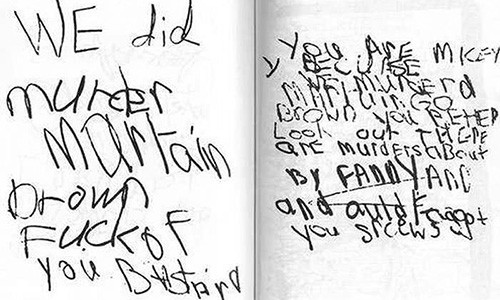 WE did
murder
martain
brown
Fuckof
you Bastard
you ARE MICEY
y BECUSE
WE MURDERD
MARTAIN GO
BROWN you BETTER
Look out THERE
are murders about
By FANNY AND
and auld Faggot
you srcews